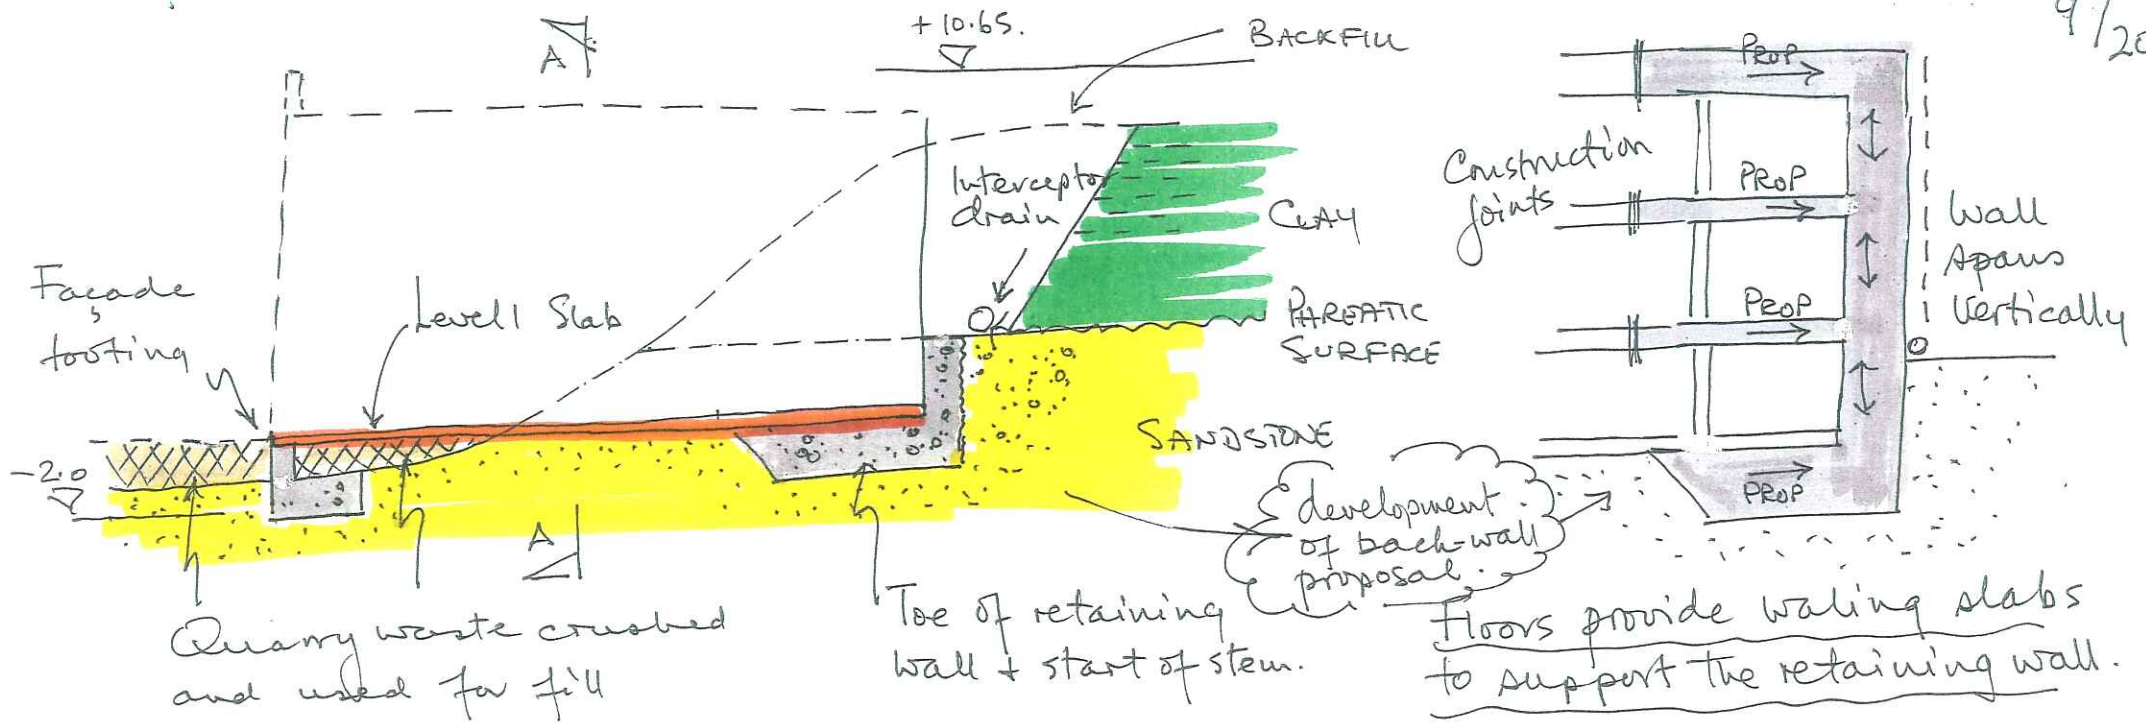 9/20
A
+10.65.
BACKFILL
Interceptor
drain
CLAY
PHREATIC
SURFACE
SANDSTONE
Facade
footing
Level 1 Slab
-2.0
A
Quarry waste crushed
and used for fill
Toe of retaining
wall + start of stem.
development
of back-wall
proposal.
Construction
joints
PROP
PROP
PROP
PROP
Wall
spans
vertically
Floors provide waling slabs
to support the retaining wall.